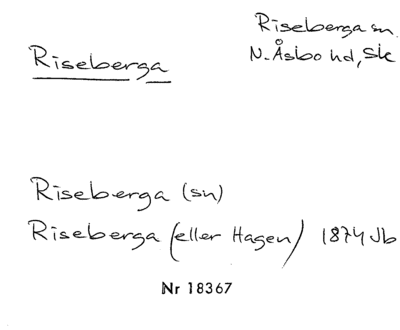 Riseberga sn
N. Åsbo hd, Sk
Riseberga
Riseberga (sn)
Riseberga (eller Hagen) 1874 Jb
Nr 18367